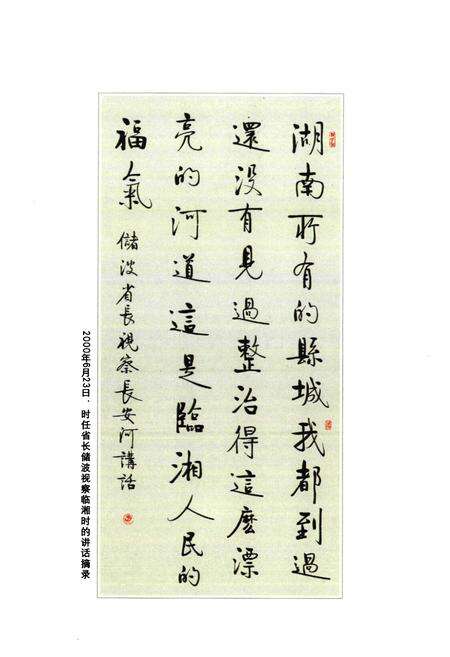 湖南所有的縣城我都到過
還没有見過整治得這麽漂
亮的河道這是臨湘人民的
福氣
儲波省長視察長安河講話
2000年6月23日，时任省长储波视察临湘时的讲话摘录